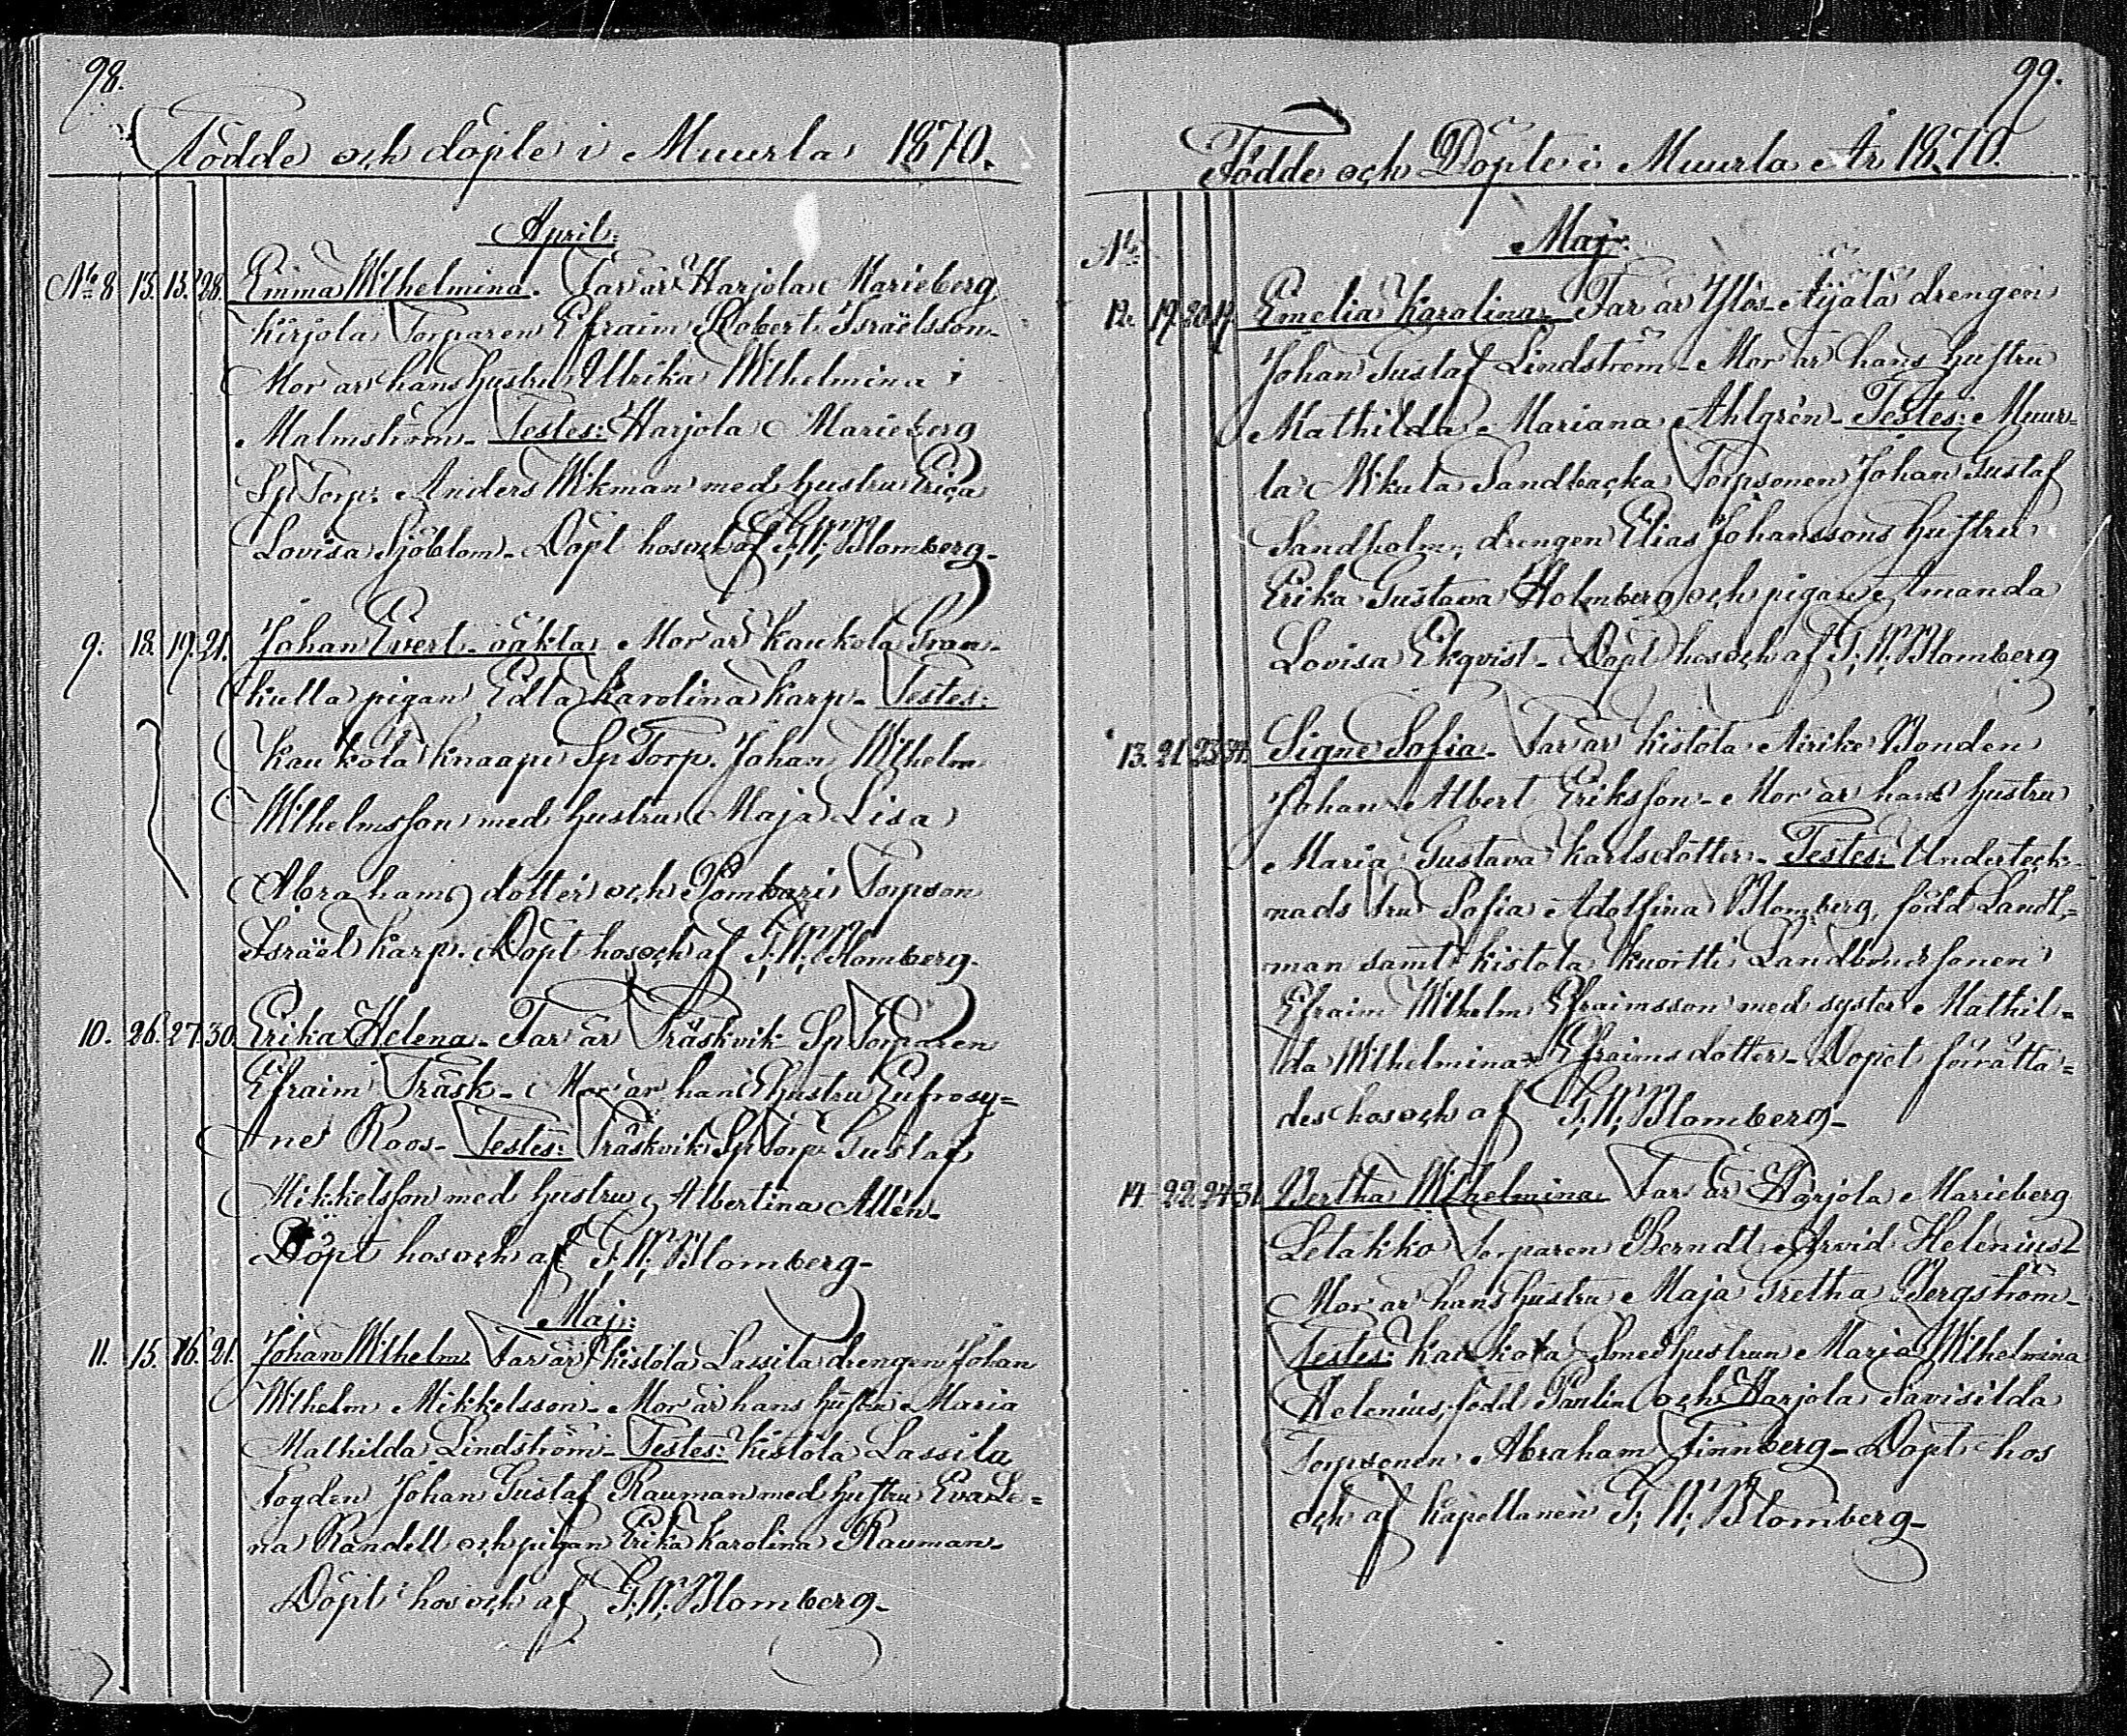 98.
Födde och döpte i Muurla 1870.
April:
No 8 13. 13. 28. Emma Wilhelmina. Far är Harjola Marieberg
Kirjola Torparen Efraim Robert Israëlsson.
Mor är hans hustru Ulrika Wilhelmina
Malmström. Testes: Harjola Marieberg
Sp Torp: Anders Wikman med hustru Erica
Lovisa Sjöblom. Döpt hos och af G. W. Blomberg.
9. 18. 19. 21. Johan Evert. oäkta Mor är Kaukola
kulla pigan Edla Karolina Karp. Testes:
Kaukola Knaapi Sp Torp. Johan Wilhelm
Wilhelmsson med hustru Maja Lisa
Abrahams dotter och Pombari Torpson
Israël Karp. Döpt hos och af G. W. Blomberg.
10. 26. 27. 30. Erika Helena. Far är Träskvik Sp Torparen
Efraim Träsk. Mor är hans hustru Eufrosy=
ne Roos. Testes: Träskvik Sp Torp. Gustaf
Mikkelsson med hustru Albertina Allén.
Döpt hos och af G. W. Blomberg.
Maj:
11. 15. 16. 21. Johan Wilhelm Far är Kistola Lassila drengen Johan
Wilhelm Mikkelsson. Mor är hans hustru Maria
Mathilda Lindström. Testes: Kistola Lassila
Fogden Johan Gustaf Rauman med hustru Eva Le=
na Randell och pigan Erika Karolina Rauman.
Döpt hos och af G. W. Blomberg.
99.
Födde och Döpte i Muurla År 1870.
No
Maj:
12. 19. 20. Emelia Karolina. Far är Ylös-Äijälä drengen
Johan Gustaf Lindström. Mor är hans hustru
Mathilda Mariana Ahlgrén. Testes: Muur=
la Nikula Sandbacka Torpsonen Johan Gustaf
Sandholm, drengen Elias Johanssons hustru
Erika Gustava Holmberg och pigan Amanda
Lovisa Ekqvist. Döpt hos och af G. W. Blomberg
13. 21. 23. 31. Signe Sofia. Far är Kistola Airike Bonden
Johan Albert Eriksson. Mor är hans hustru
Maria Gustava Karlsdotter. Testes: Underteck
nads fru Sofia Adolfina Blomberg, född Landt=
man samt Kistola Kuortti Landbondsonen
Efraim Wilhelm Efraimsson med syster Mathil=
da Wilhelmina Efraimsdotter. Dopet förrätta=
des hos och af G. W. Blomberg.
14. 22. 24. 31. Bertha Wilhelmina. Far är Harjola Marieberg
Letakko Torparen Berndt Arvid Helenius
Mor är hans hustru Maja Gretha Bergström.
Testes: Kaukola Smedhustrun Maria Wilhelmina
Helenius, född Paulin och Harjola Savisilda
Torpsonen Abraham Finnberg. Döpt hos
och af Kapellanen G. W. Blomberg.